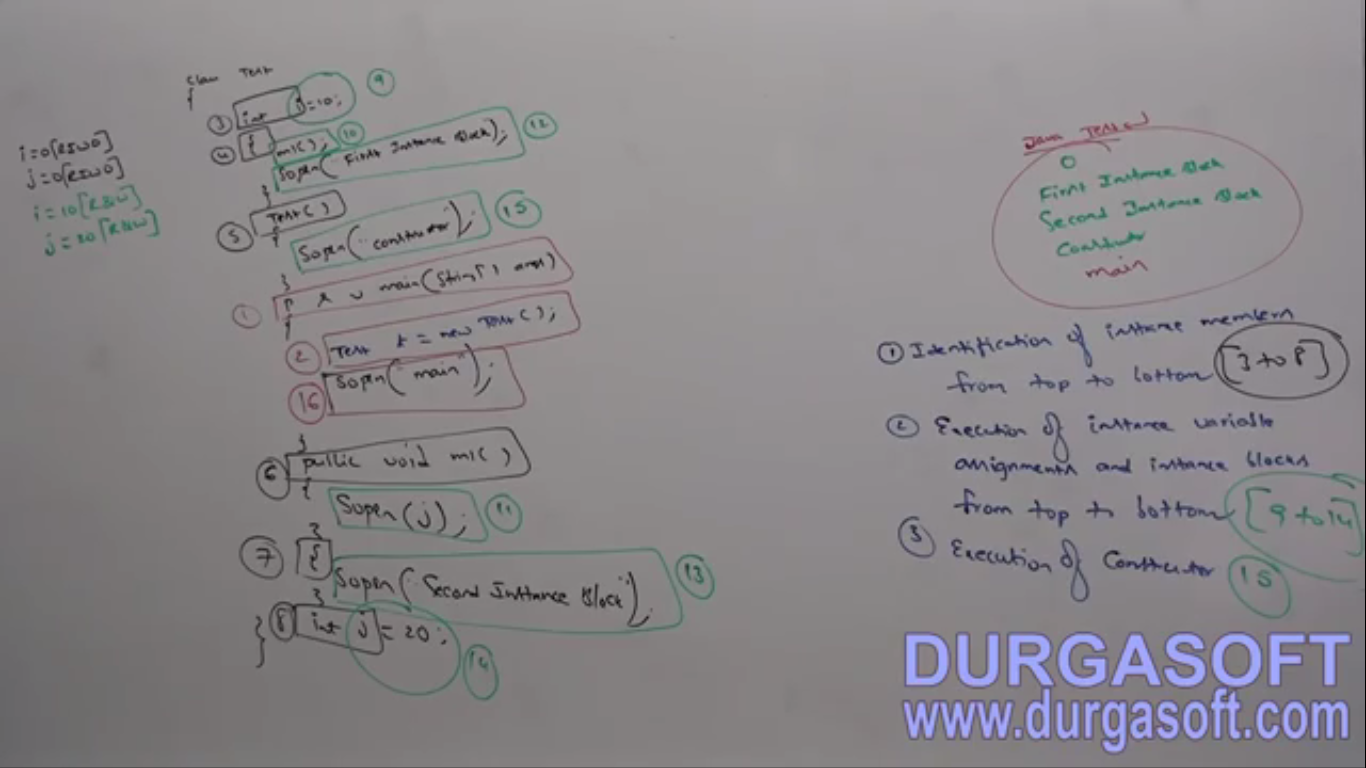 class Test
{
③ int i=10; ⑨
④ { m1(); ⑩
Sopln("First Instance Block"); ⑫
}
⑤ Test()
{
Sopln("constructor"); ⑮
}
① p s v main(String[] args)
{
② Test t = new Test();
⑯ Sopln("main");
}
⑥ public void m1()
{
Sopln(j); ⑪
}
⑦ {
Sopln("Second Instance Block"); ⑬
}
⑧ int j = 20; ⑭
}
i=0[RIWO]
j=0[RIWO]
i=10[R&W]
j=20[R&W]
Java Test ↵
0
First Instance Block
Second Instance Block
Constructor
main
① Identification of instance members
from top to bottom [3 to 8]
② Execution of instance variable
assignments and instance blocks
from top to bottom [9 to 14]
③ Execution of Constructor 15
DURGASOFT
www.durgasoft.com